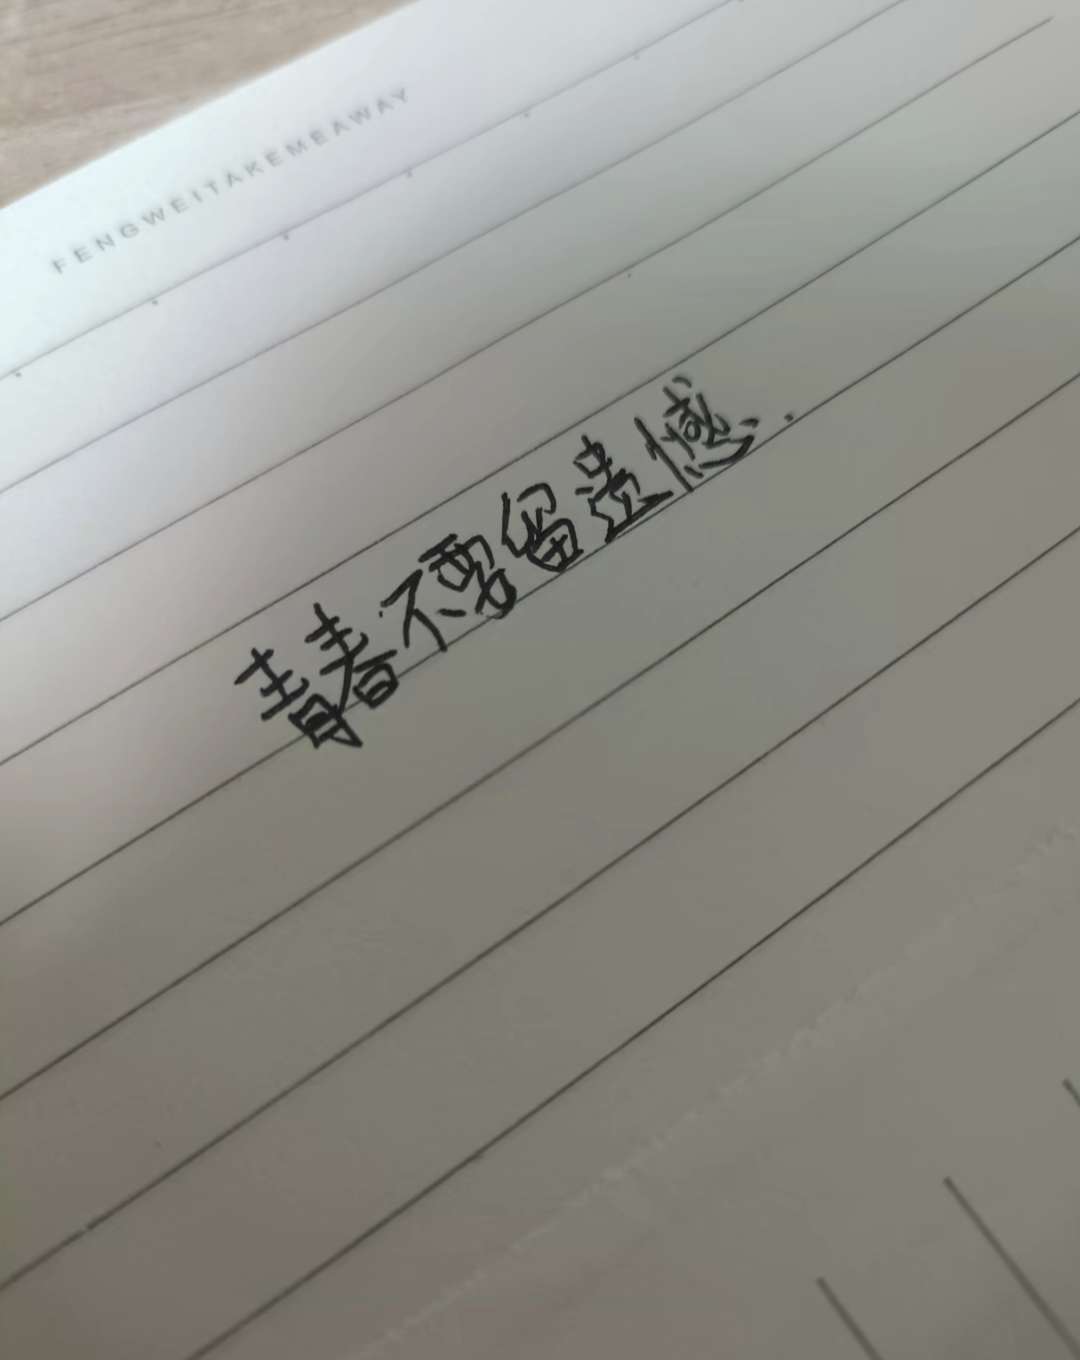 FENGWEITAKEMEAWAY
青春不要留遗憾.